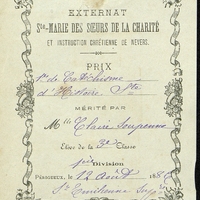 EXTERNAT
Ste-MARIE DES SŒURS DE LA CHARITÉ
ET INSTRUCTION CHRÉTIENNE DE NEVERS.
PRIX
1er de Catéchisme
d'Histoire Ste
MÉRITÉ PAR
Mlle Claire
Elève de la 3e Classe
1ère Division
PÉRIGUEUX, le 12 Août 188
Sr Emilienne Supre